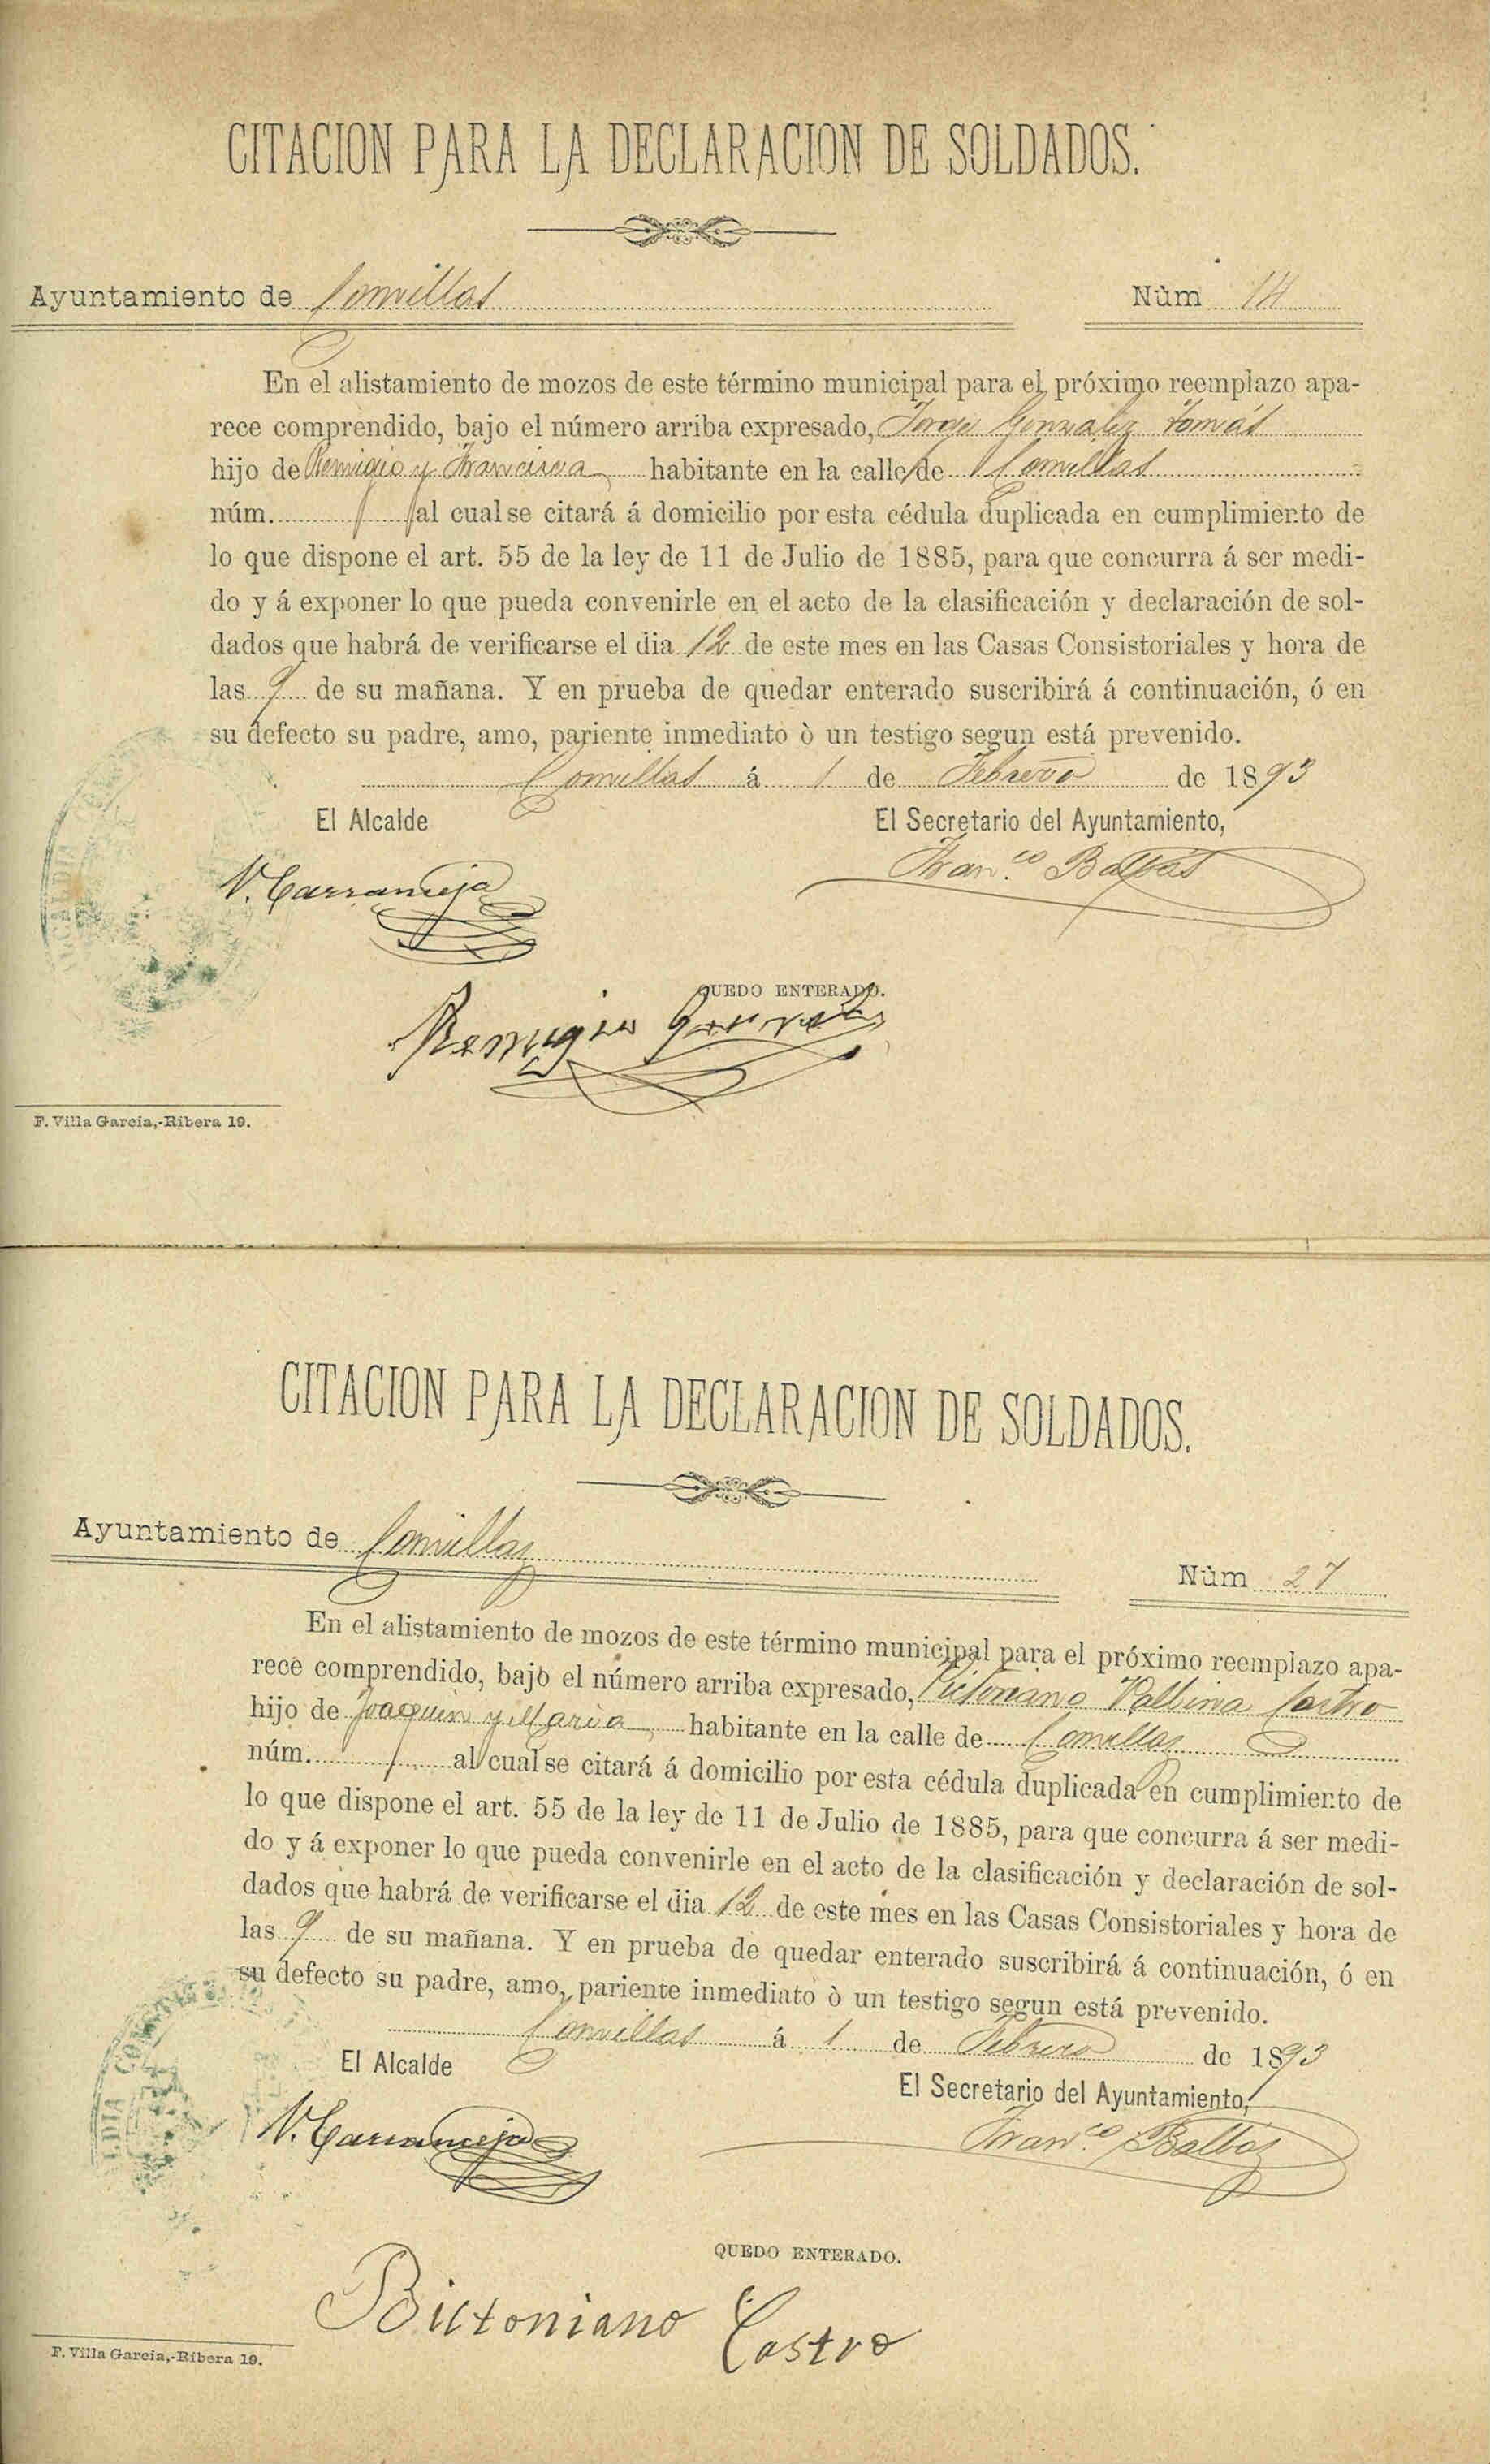 CITACION PARA LA DECLARACION DE SOLDADOS.
Ayuntamiento de Comillas Núm 14
En el alistamiento de mozos de este término municipal para el próximo reemplazo apa-
rece comprendido, bajo el número arriba expresado, Jorge Gonzalez Tomás
hijo de Remigio y Francisca, habitante en la calle de Comillas
núm. al cual se citará á domicilio por esta cédula duplicada en cumplimiento de
lo que dispone el art. 55 de la ley de 11 de Julio de 1885, para que concurra á ser medi-
do y á exponer lo que pueda convenirle en el acto de la clasificación y declaración de sol-
dados que habrá de verificarse el dia 12 de este mes en las Casas Consistoriales y hora de
las 9 de su mañana. Y en prueba de quedar enterado suscribirá á continuación, ó en
su defecto su padre, amo, pariente inmediato ò un testigo segun está prevenido.
Comillas á 1 de Febrero de 1893
El Alcalde El Secretario del Ayuntamiento,
V. Carranceja Fran.co Balbás
QUEDO ENTERADO.
Remigio Gonzalez
F. Villa García,-Ribera 19.
CITACION PARA LA DECLARACION DE SOLDADOS.
Ayuntamiento de Comillas Núm 27
En el alistamiento de mozos de este término municipal para el próximo reemplazo apa-
rece comprendido, bajo el número arriba expresado, Victoriano Vallina Castro
hijo de Joaquin y Maria, habitante en la calle de Comillas
núm. al cual se citará á domicilio por esta cédula duplicada en cumplimiento de
lo que dispone el art. 55 de la ley de 11 de Julio de 1885, para que concurra á ser medi-
do y á exponer lo que pueda convenirle en el acto de la clasificación y declaración de sol-
dados que habrá de verificarse el dia 12 de este mes en las Casas Consistoriales y hora de
las 9 de su mañana. Y en prueba de quedar enterado suscribirá á continuación, ó en
su defecto su padre, amo, pariente inmediato ò un testigo segun está prevenido.
Comillas á 1 de Febrero de 1893
El Alcalde El Secretario del Ayuntamiento,
V. Carranceja Fran.co Balbás
QUEDO ENTERADO.
Bictoniano Castro
F. Villa García,-Ribera 19.